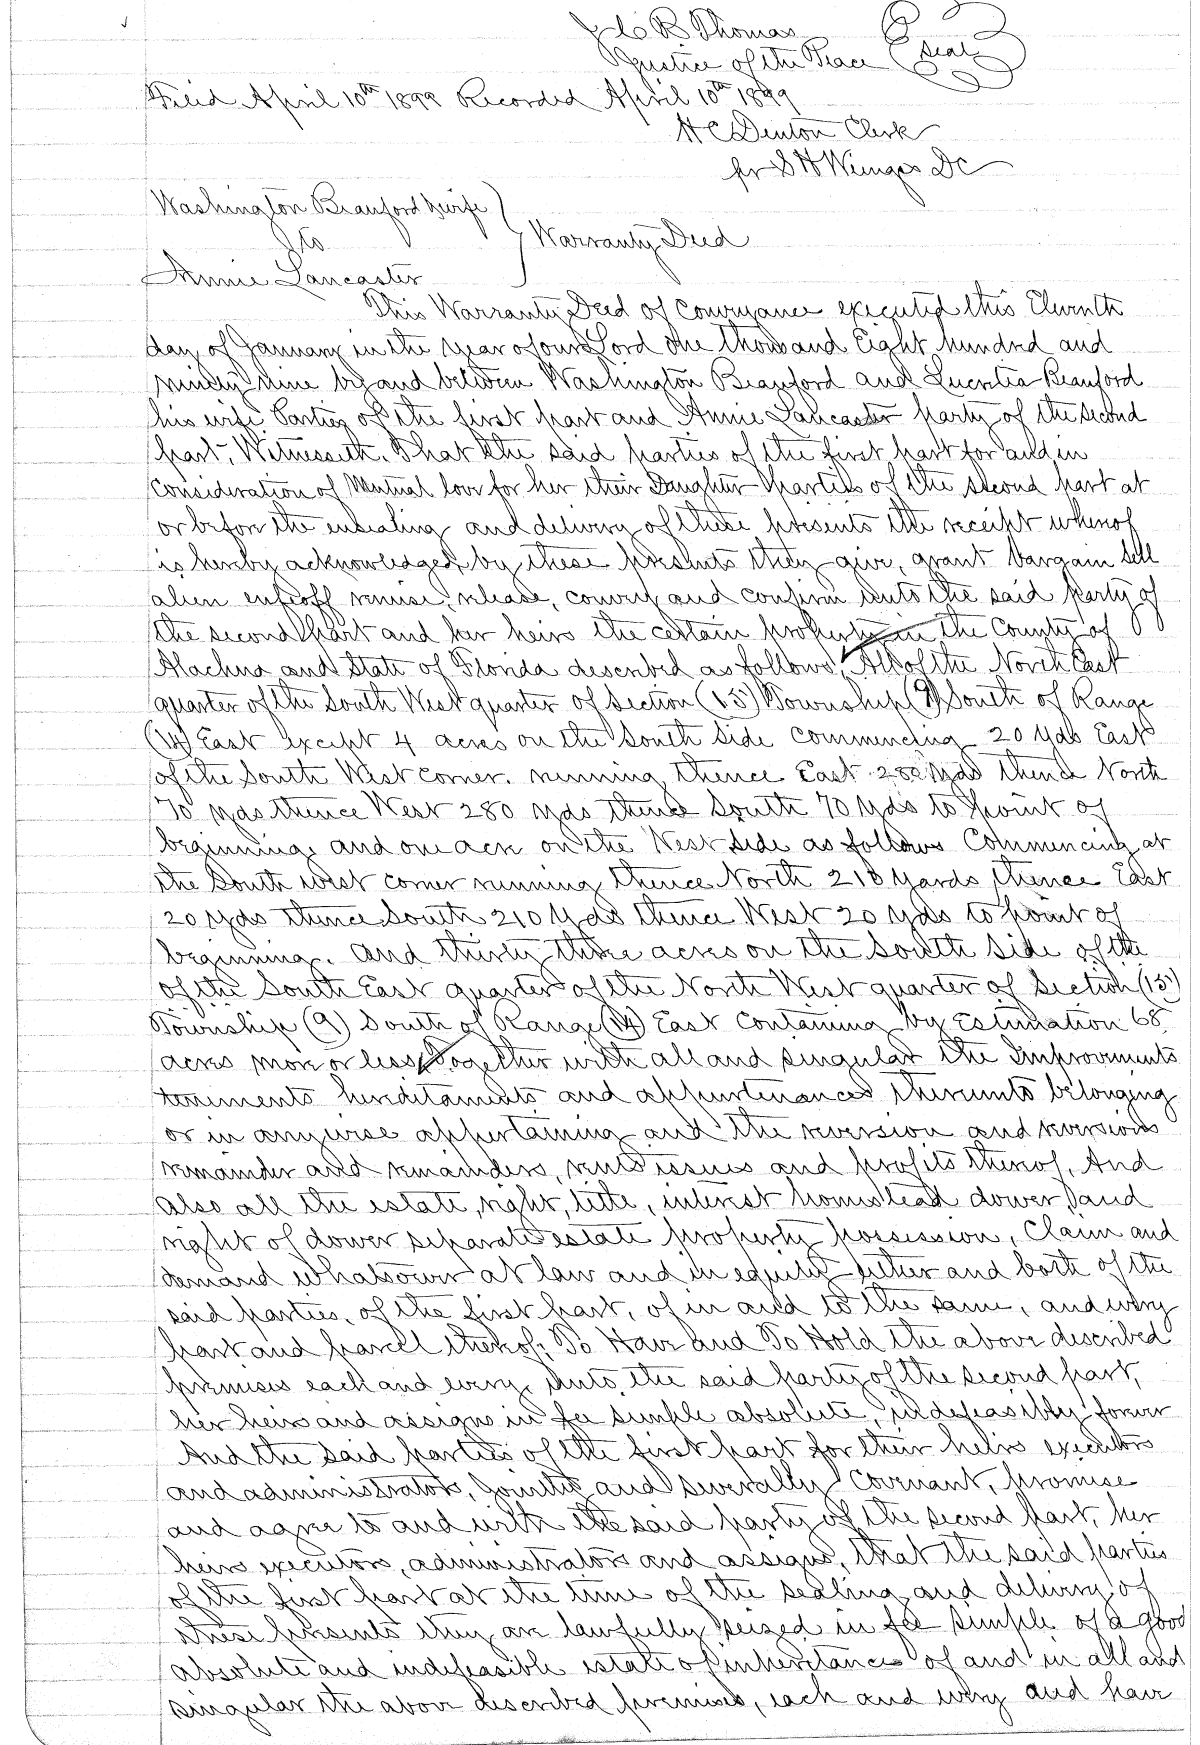 J C B Thomas
Justice of the Peace (Seal)
Filed April 10th 1899 Recorded April 10th 1899
H C Denton Clerk
pr S H Wienges DC
Washington Beauford & wife
to
Warranty Deed
Annie Lancaster
This Warranty Deed of conveyance executed this Eleventh
day of January in the year of our Lord One thousand Eight hundred and
ninety nine by and between Washington Beauford and Lucretia Beauford
his wife Parties of the first part and Annie Lancaster party of the second
part, Witnesseth, That the said parties of the first part for and in
consideration of Mutual love for her their Daughter parties of the second part at
or before the ensealing and delivery of these presents the receipt whereof
is hereby acknowledged, by these presents they give, grant bargain sell
alien enfeoff remise, release, convey and confirm unto the said party of
the second part and her heirs the certain property in the County of
Alachua and State of Florida described as follows, All of the North East
quarter of the South West quarter of Section (15) Township (9) South of Range
(14) East except 4 acres on the South side commencing 20 yds East
of the South West corner. running thence East 280 yds thence North
70 yds thence West 280 yds thence South 70 yds to point of
beginning, and one acre on the West side as follows Commencing at
the South west corner running thence North 210 yards thence East
20 yds thence South 210 yds thence West 20 yds to point of
beginning. and thirty three acres on the South side of the
of the South East quarter of the North West quarter of Section (15)
Township (9) South of Range (14) East containing by Estimation 68
acres more or less, Together with all and singular the Improvements
tenements hereditaments and appurtenances thereunto belonging
or in anywise appertaining and the reversion and reversions
remainder and remainders, rents issues and profits thereof, And
also all the estate, right, title, interest homestead dower, and
right of dower separate estate property possession, Claim and
demand whatsoever at law and in equity either and both of the
said parties, of the first part, of in and to the same, and every
part and parcel thereof; To Have and To Hold the above described
premises each and every unto the said party of the second part,
her heirs and assigns in fee simple absolute, indefeasibly forever
And the said parties of the first part for their heirs executors
and administrators, jointly and severally Covenant, promise
and agree to and with the said party of the second part, her
heirs executors, administrators and assigns, that the said parties
of the first part at the time of the sealing and delivery of
these presents they are lawfully seized in fee simple of a good
absolute and indefeasible estate of inheritance of and in all and
singular the above described premises, each and every and have